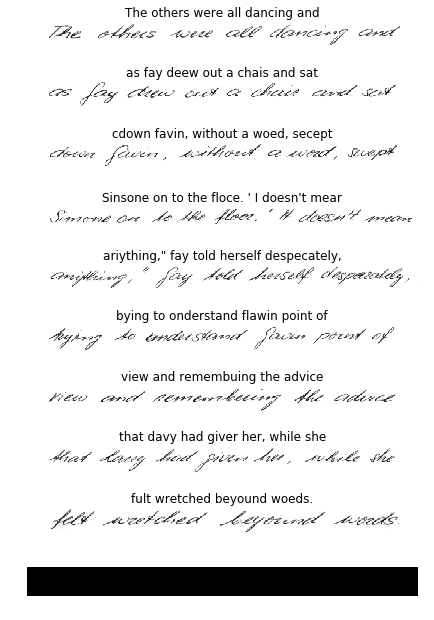 The others were all dancing and
The others were all dancing and
as fay deew out a chais and sat
as fay drew out a chair and sat
cdown favin, without a woed, secept
down Gavin, without a word, swept
Sinsone on to the floce. ' I doesn't mear
Simone on to the floor. " It doesn't mean
ariything," fay told herself despecately,
anything," fay told herself desperately,
bying to onderstand flawin point of
trying to understand Gavin point of
view and remembuing the advice
view and remembering the advice
that davy had giver her, while she
that davy had given her, while she
fult wretched beyound woeds.
felt wretched beyound words.